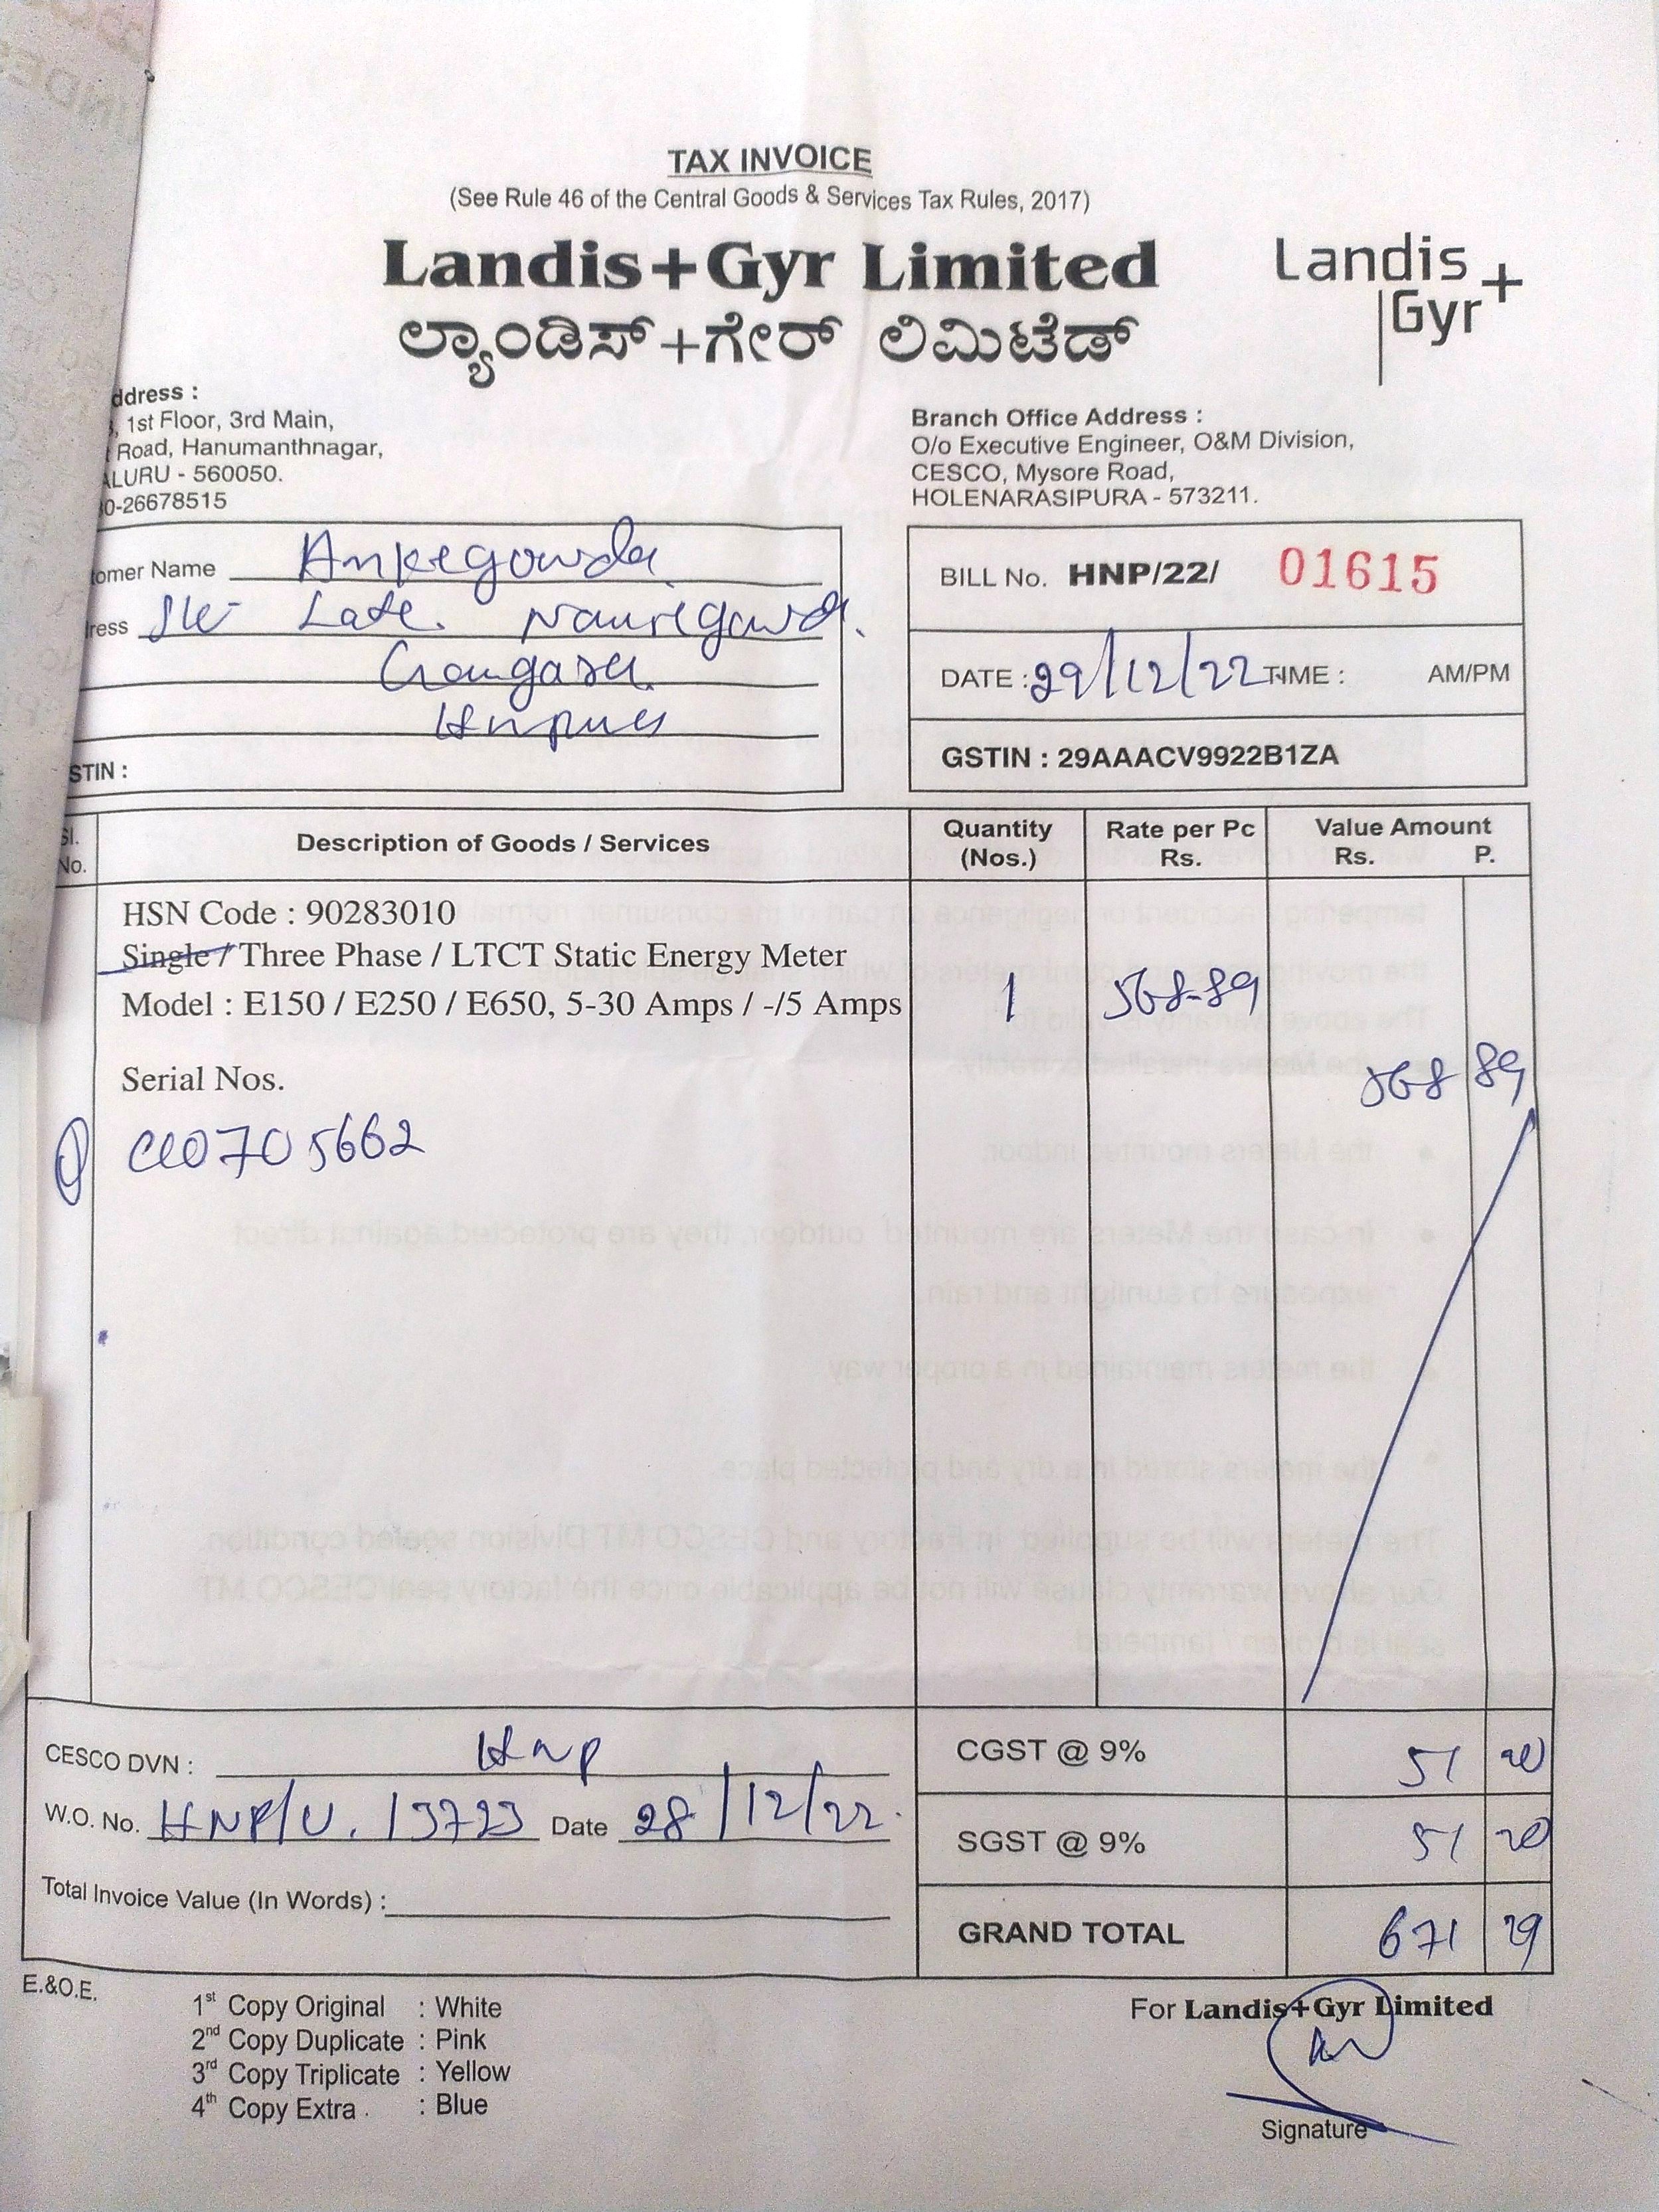 TAX INVOICE
(See Rule 46 of the Central Goods & Services Tax Rules, 2017)
Landis+Gyr Limited
ಲ್ಯಾಂಡಿಸ್+ಗೇರ್ ಲಿಮಿಟೆಡ್
Landis
Gyr+
ddress :
, 1st Floor, 3rd Main,
Road, Hanumanthnagar,
ALURU - 560050.
0-26678515
Branch Office Address :
O/o Executive Engineer, O&M Division,
CESCO, Mysore Road,
HOLENARASIPURA - 573211.
omer Name Ankegowda
ress Late.
Hnpura
STIN :
BILL No. HNP/22/ 01615
DATE : 29/12/22 TIME : AM/PM
GSTIN : 29AAACV9922B1ZA
Sl. No. Description of Goods / Services Quantity (Nos.) Rate per Pc Rs. Value Amount Rs. P.
HSN Code : 90283010
Single / Three Phase / LTCT Static Energy Meter
Model : E150 / E250 / E650, 5-30 Amps / -/5 Amps 1 568-89
568 89
Serial Nos.
0705662
CESCO DVN : HNP
W.O. No. HNP/U. 13723 Date 28/12/22.
Total Invoice Value (In Words) :
CGST @ 9% 51 20
SGST @ 9% 51 20
GRAND TOTAL 671 29
E.&O.E.
1st Copy Original : White
2nd Copy Duplicate : Pink
3rd Copy Triplicate : Yellow
4th Copy Extra . : Blue
For Landis+Gyr Limited
Signature